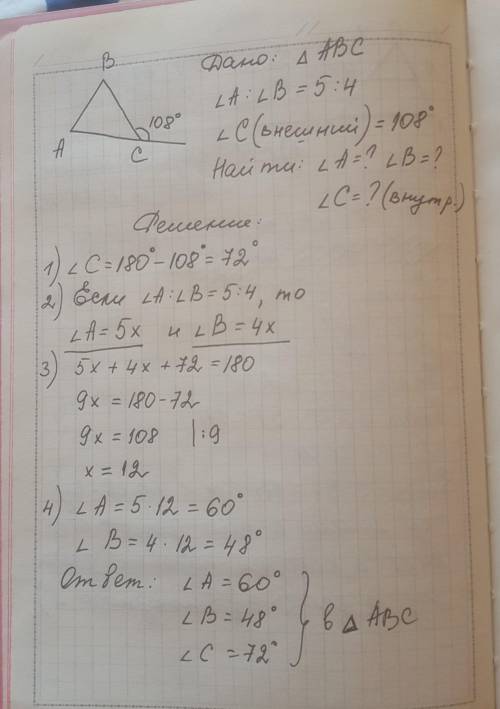 B
A
C
108°
Дано: △ ABC
∠A:∠B = 5:4
∠C (внешний) = 108°
Найти: ∠A=? ∠B=?
∠C=? (внутр.)
Решение:
1) ∠C = 180° - 108° = 72°
2) Если ∠A:∠B = 5:4, то
∠A = 5x и ∠B = 4x
3) 5x + 4x + 72 = 180
9x = 180 - 72
9x = 108 |:9
x = 12
4) ∠A = 5 · 12 = 60°
∠B = 4 · 12 = 48°
Ответ: ∠A = 60°
∠B = 48° } в △ ABC
∠C = 72°